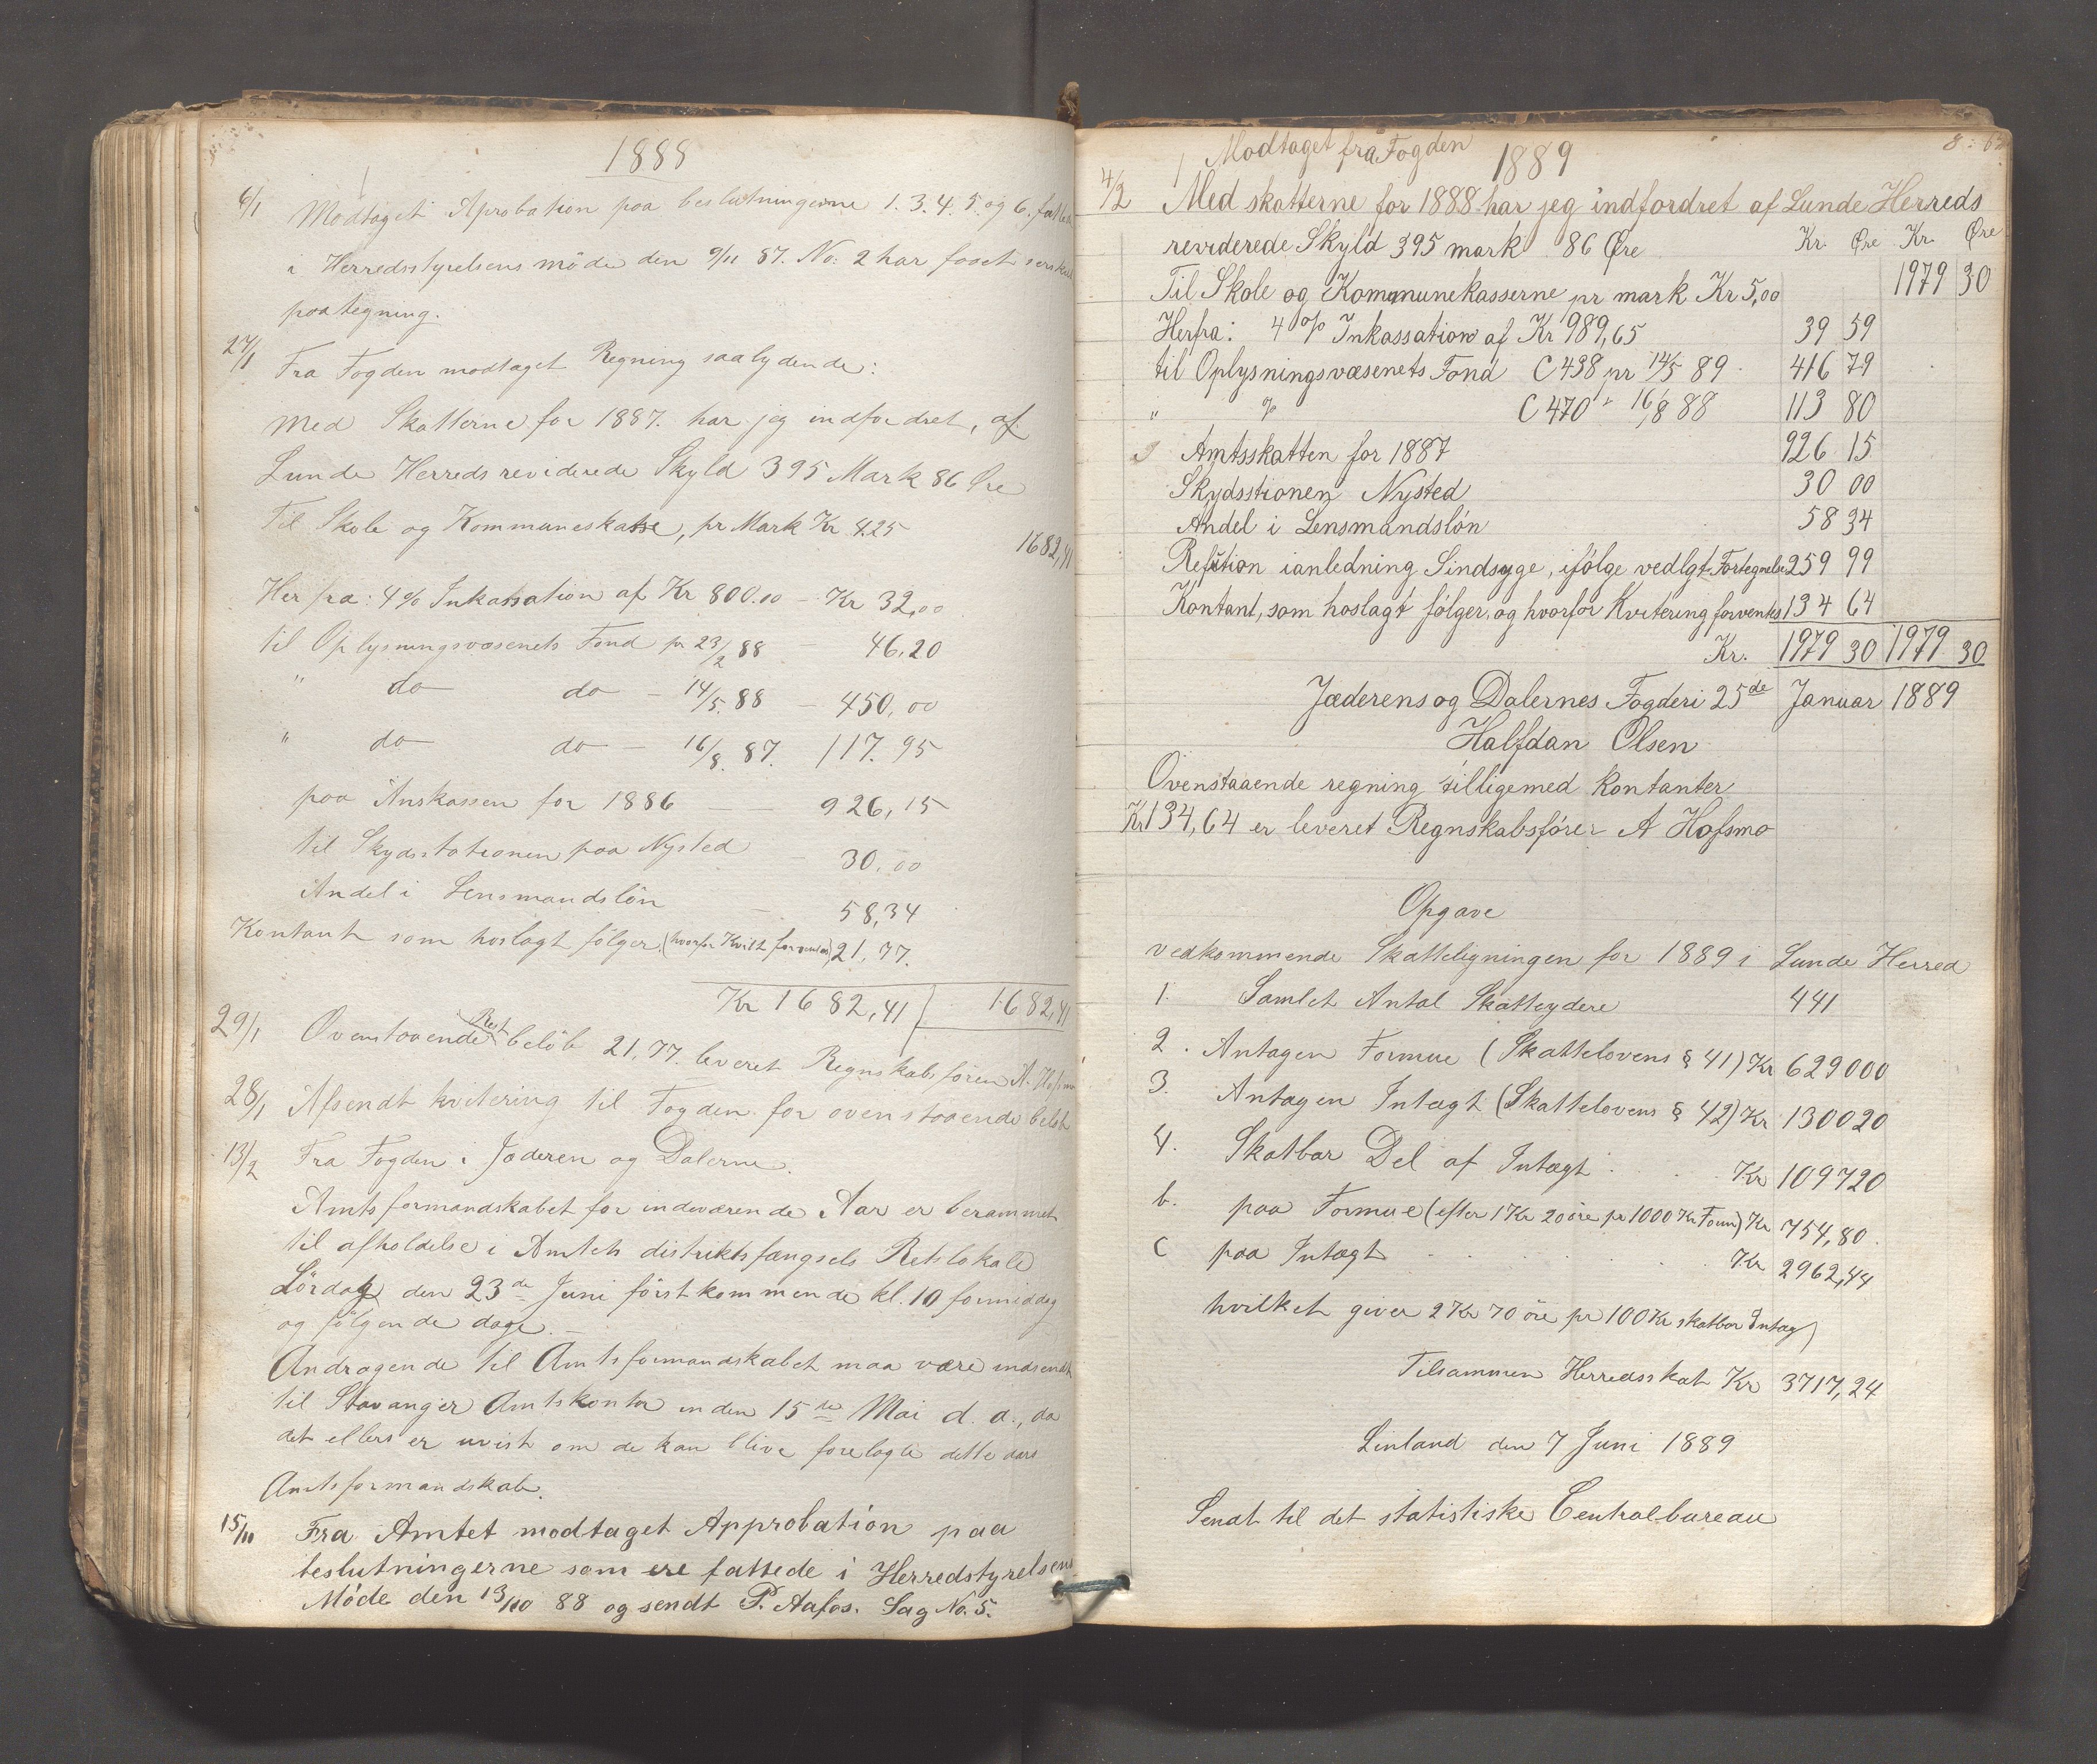 1888
6/1 Modtaget Aprobation paa beslutningerne 1. 3. 4. 5. og 6. fattede
i Herredsstyrelsens möde den 9/11 87. No: 2 har faaet
paategning.
27/1 Fra Fogden modtaget Regning saalydende:
Med Skatterne for 1887. har jeg indfordret, af
Lunde Herreds reviderede Skyld 395 Mark 86 Øre
Til Skole og Kommuneskasse, pr Mark Kr 4.25 1682,41
Herfra: 4 % Inkassation af Kr 800.00 – Kr 32,00
til Oplysningsvæsenets Fond pr 23/2 88 – 46,20
" do do – 14/5. 88 – 450,00
" do do – 16/8. 87. 117.95
paa Amskassen for 1886 – 926,15
til Skydsstationen paa Nysted – 30,00
Andel i Lensmandslön – 58,34
Kontant som hoslagt fölger (hvorfor Kvitt forventes) 21,77.
Kr 1682,41 1682,41
29/1 Ovenstaaende Rest beløb 21,77. leveret Regnskabsføren A. Hofsmo
28/1 Afsendt kvitering til Fogden for ovenstaaende beløb
13/2 Fra Fogden i Jæderen og Dalerne.
Amtsformandskabet for indeværende Aar er berammet
til afholdelse i Amtets distriktsfængsels Retslokale
Lördag den 23de Juni förstkommende kl. 10 formiddag
og fölgende dage. –
Andragende til Amtsformandskabet maa være indsendt
til Stavanger Amtskontor inden 15de Mai d. a., da
det ellers er uvist om de kan blive forelagte dette aars
Amtsformandskab.
15/11 Fra Amtet modtaget Approbation paa
beslutningerne som ere fattede i Herredstyrelsens
Möde den 13/10 88 og sendt P. Aafos. Sag No. 5.
Modtaget fra Fogden 1889
4/2 Med skatterne for 1888 har jeg indfordret af Lunde Herreds
reviderede Skyld 395 mark 86 Øre Kr. Øre Kr. Øre
Til Skole og Kommunekasserne pr mark Kr 5,00 1979 30
Herfra: 4 % Inkassation af Kr 989,65 39 59
til Oplysningsvæsenets Fond C 438 pr 14/5 89 416 79
" % C 470 " 16/8 88 113 80
Amtsskatten for 1887 926 15
Skydsstionen Nysted 30 00
Andel i Lensmandslön 58 34
Refution ianledning Sindsyge, ifölge vedlgt Fortegnelse 259 99
Kontant, som hoslagt fölger, og hvorfor Kvitering forventes 134 64
Kr. 1979 30 1979 30
Jæderens og Dalernes Fogderi 25de Januar 1889
Halfdan Olsen
Ovenstaaende regning tilligemed Kontanter
Kr 134,64 er leveret Regnskabsförer A Hofsmo
Opgave
vedkommende Skatteligningen for 1889 i Lunde Herred
1. Samlet Antal Skatteydere 441
2. Antagen Formue (Skattelovens § 41) Kr 629000
3. Antagen Intægt (Skattelovens § 42) Kr 130020
4. Skatbar Del af Intægt Kr 109720
b. paa Formue (efter 1 Kr 20 öre pr 1000 Kr Form) Kr 754,80
c paa Intægt Kr 2962,44
hvilket giver 2 Kr 70 öre pr 100 Kr skatbar Intæg)
Tilsammen Herredsskat Kr 3717,24
Linland den 7 Juni 1889
Sendt til det statistiske Centralbureau